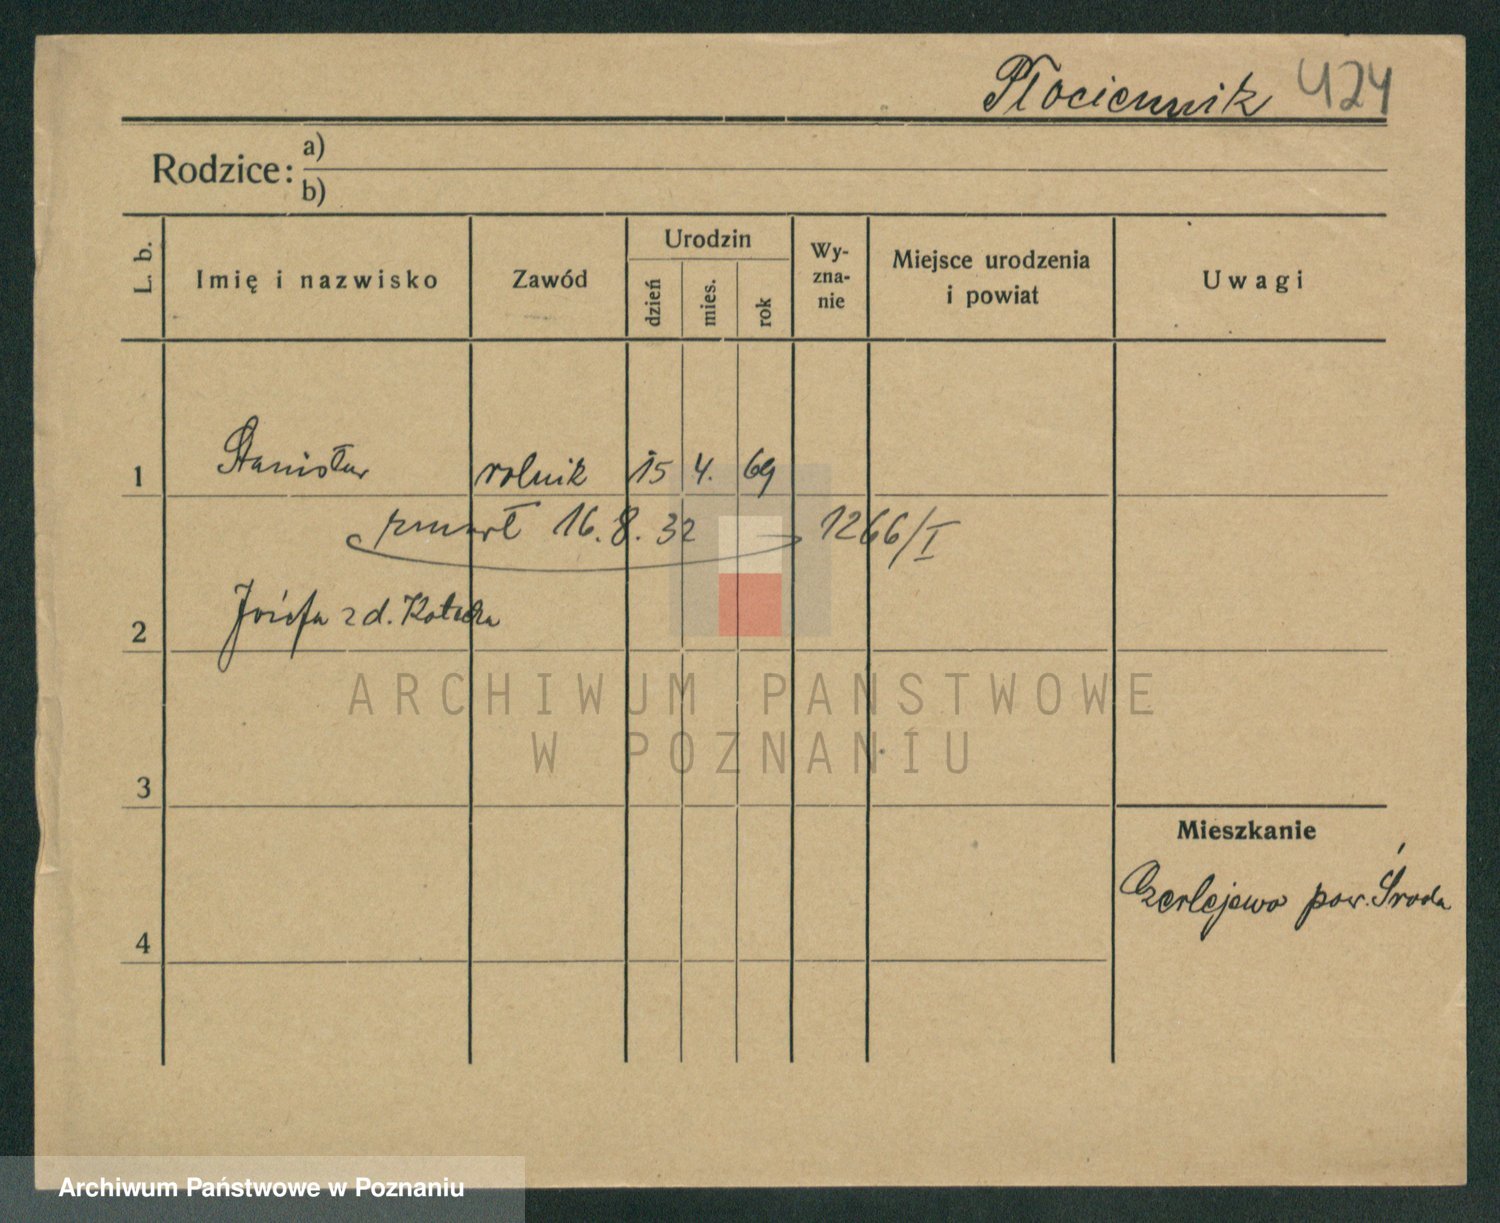 Płociennik 424
Rodzice: a)
b)
L. b.
Imię i nazwisko
Zawód
Urodzin
dzień
mies.
rok
Wy-
zna-
nie
Miejsce urodzenia
i powiat
Uwagi
1 Stanisław rolnik 15 4. 69
zmarł 16.8.32 1266/I
2 Józefa z d.
3
4
Mieszkanie
Czerlejewo pow. Środa
ARCHIWUM PAŃSTWOWE
W POZNANIU
Archiwum Państwowe w Poznaniu